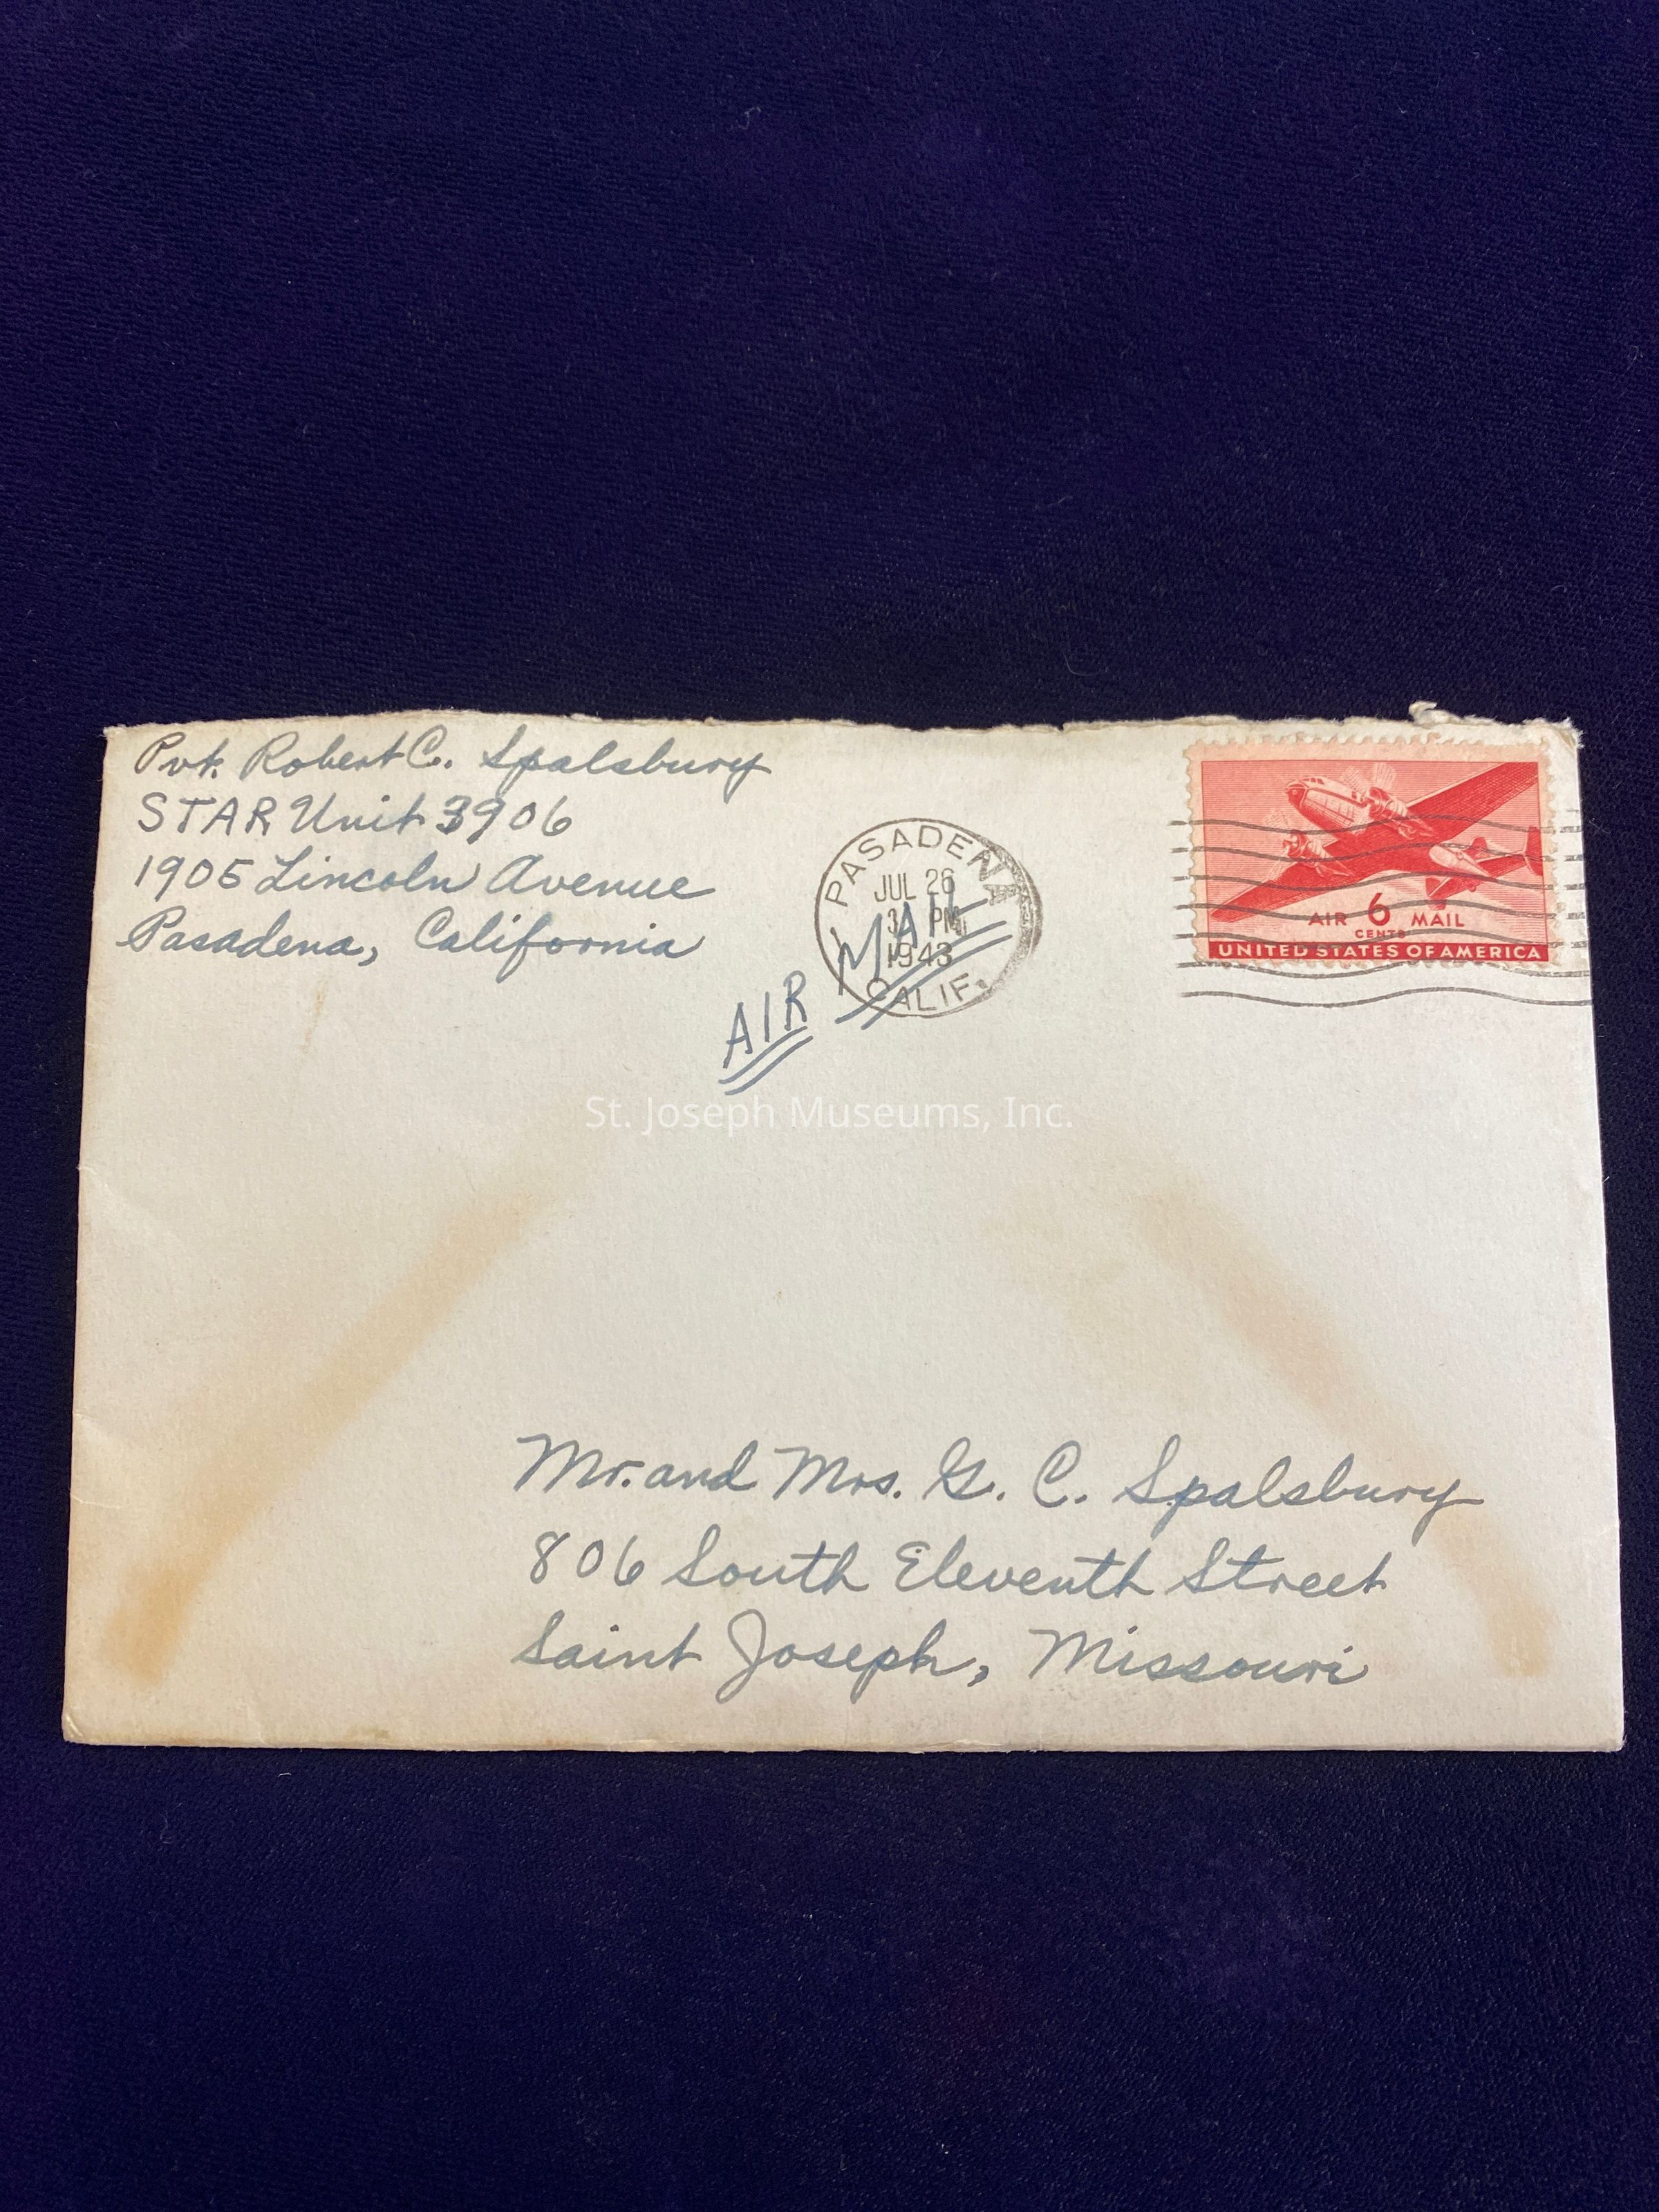 Pvt. Robert C. Spalsbury
STAR Unit 3906
1905 Lincoln Avenue
Pasadena, California
PASADENA
JUL 26
PM
1943
CALIF.
AIR MAIL
AIR 6 MAIL
CENTS
UNITED STATES OF AMERICA
St. Joseph Museums, Inc.
Mr. and Mrs. G. C. Spalsbury
806 South Eleventh Street
Saint Joseph, Missouri